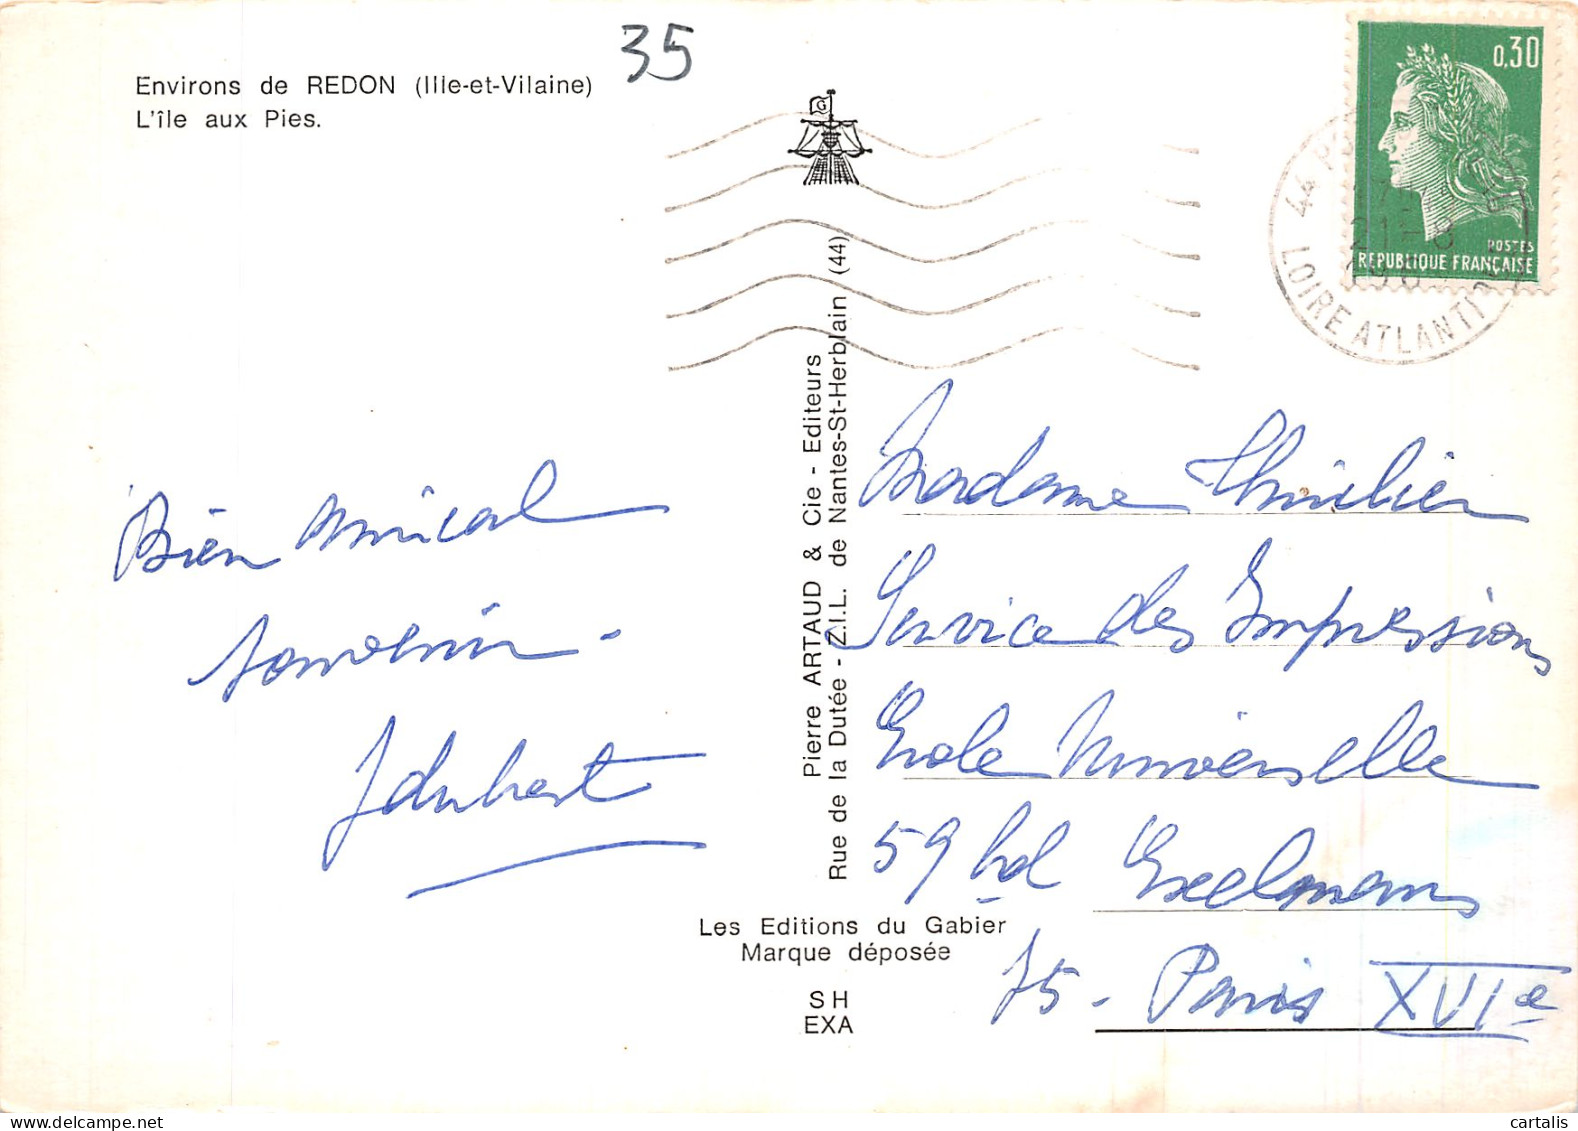 35
Environs de REDON (Ille-et-Vilaine)
L'île aux Pies.
G
0,30
POSTES
REPUBLIQUE FRANÇAISE
44
21-8
LOIRE ATLANTIQUE
Bien amical
souvenir -
Pierre ARTAUD & Cie - Editeurs
Rue de la Dutée - Z.I.L. de Nantes-St-Herblain (44)
Madame
Service des Impressions
Ecole Universelle
59 bd Exelmans
75 - Paris XVIe
Les Editions du Gabier
Marque déposée
SH
EXA
cartalis